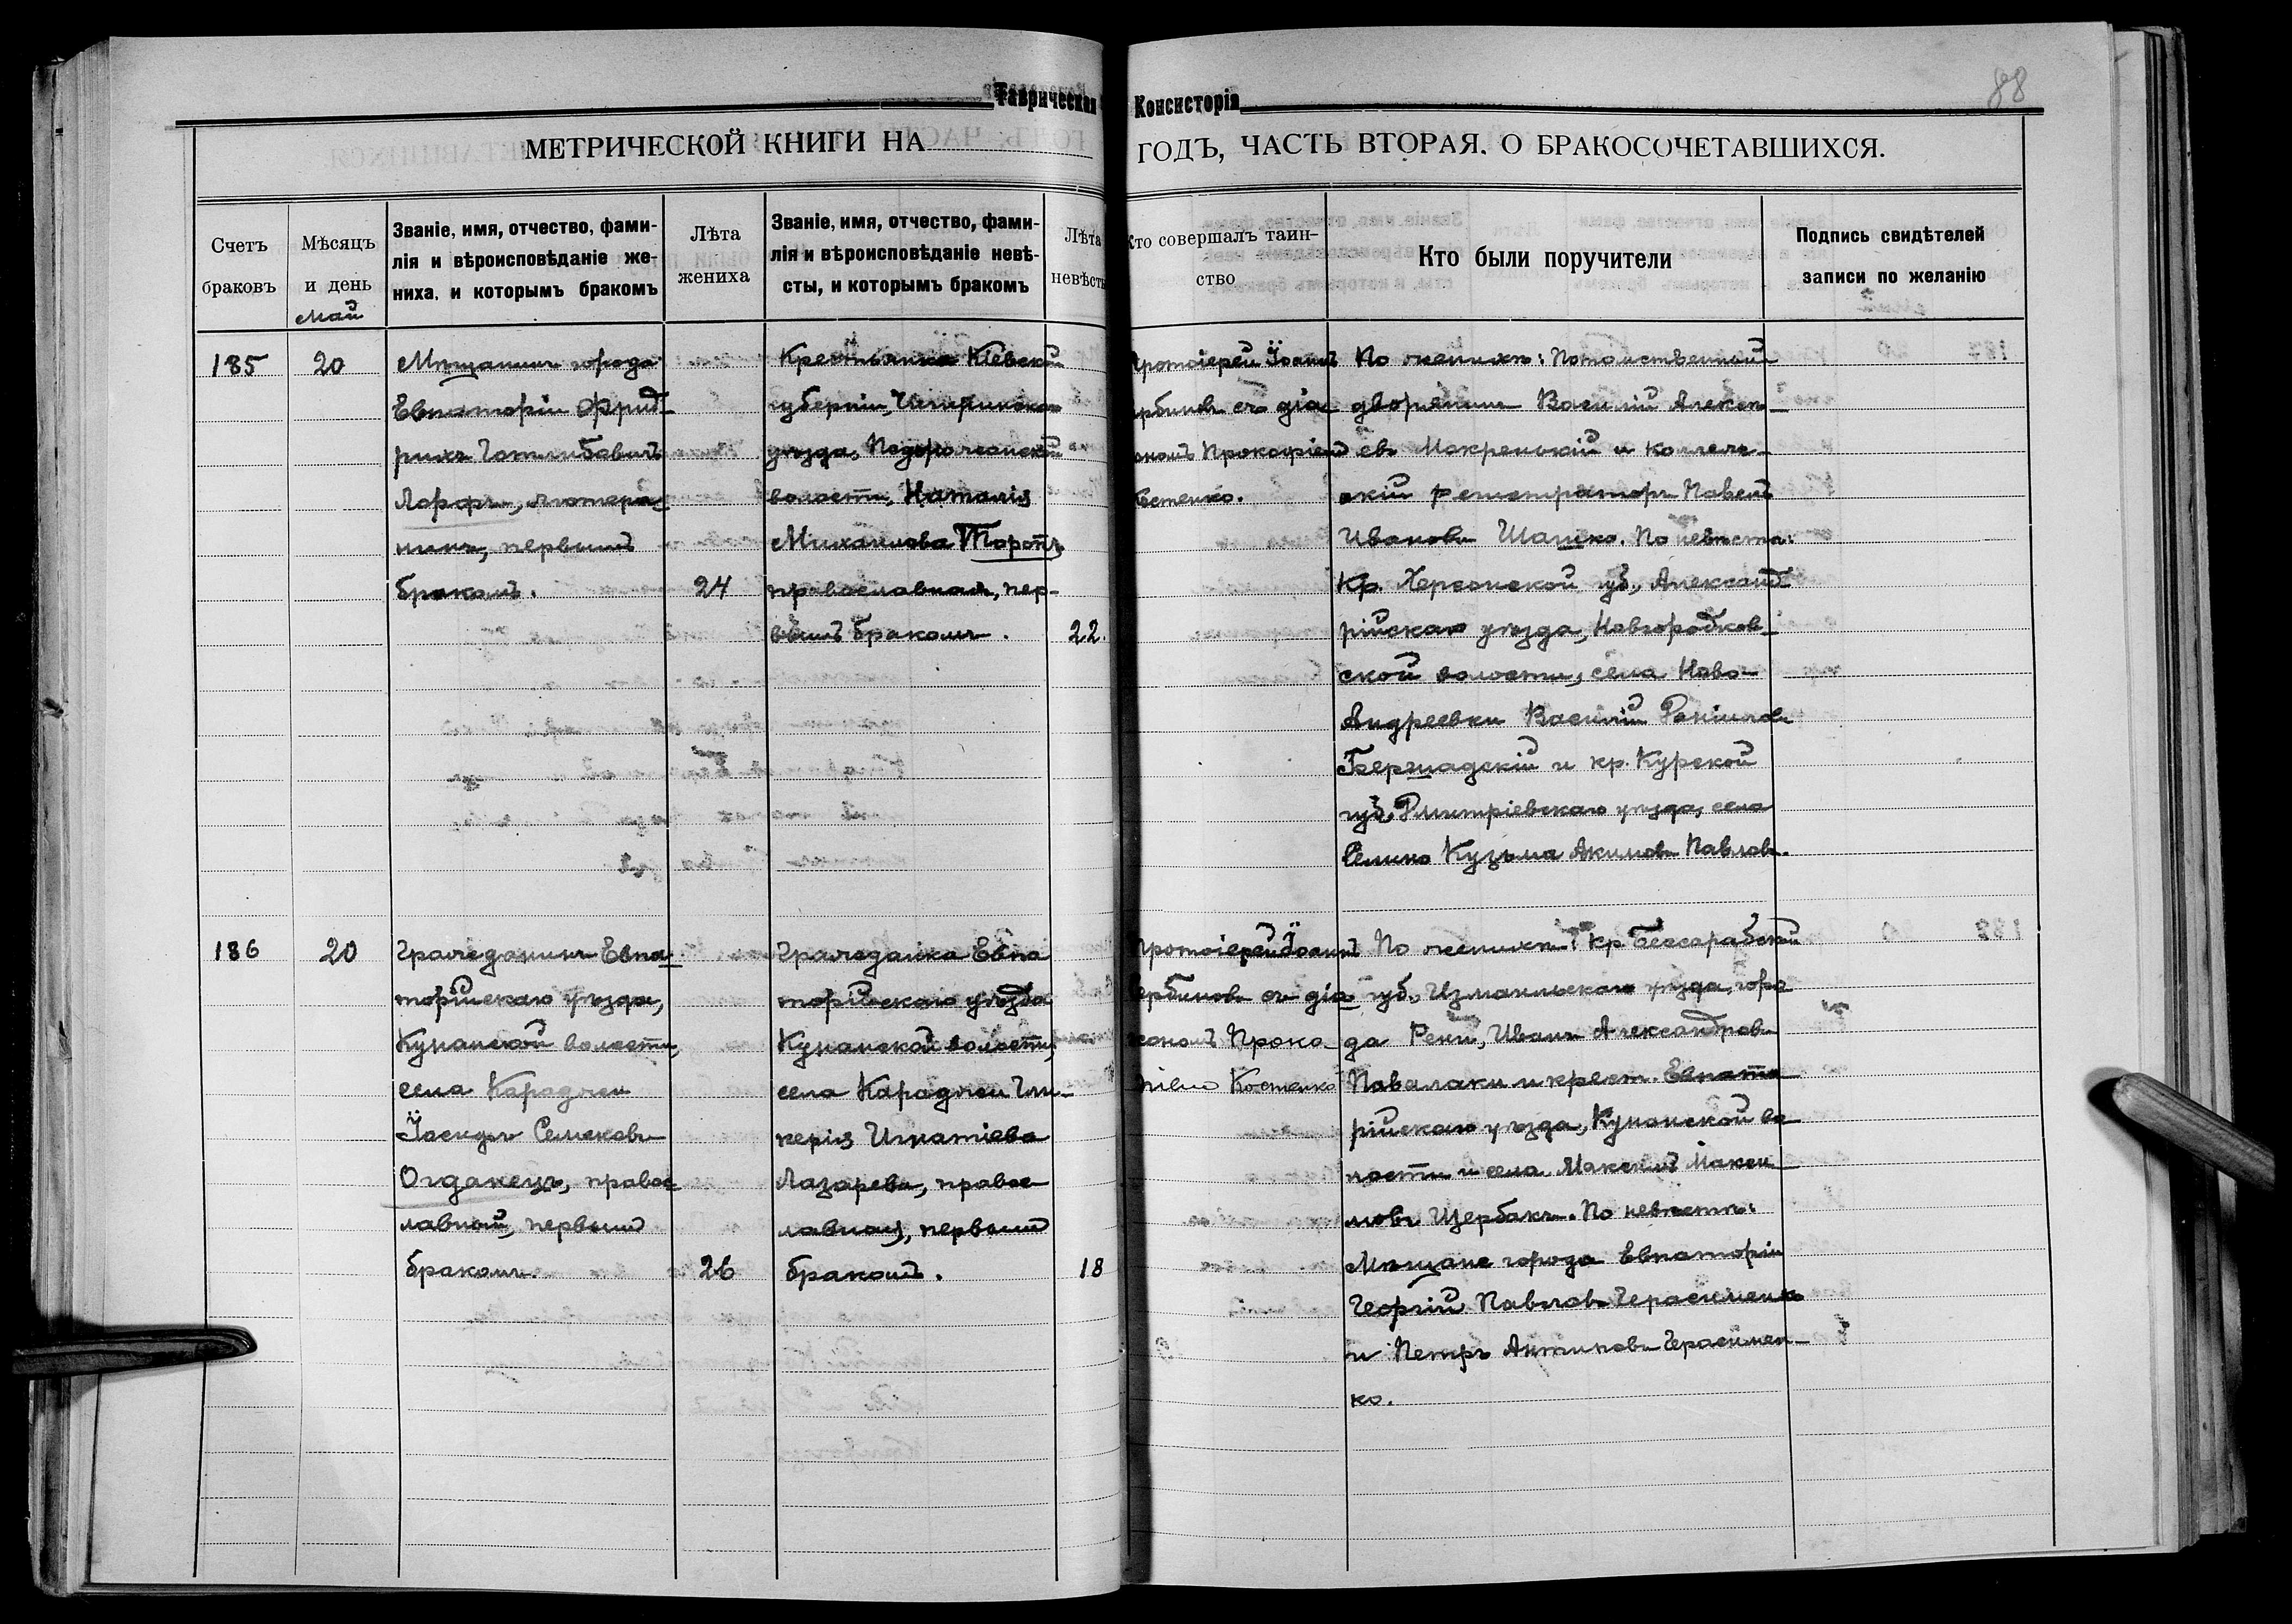 Таврическая Консисторія
88
МЕТРИЧЕСКОЙ КНИГИ НА ГОДЪ, ЧАСТЬ ВТОРАЯ, О БРАКОСОЧЕТАВШИХСЯ.
Счетъ
браковъ
Мѣсяцъ
и день
Май
Званіе, имя, отчество, фами-
лія и вѣроисповѣданіе же-
ниха, и которымъ бракомъ
Лѣта
жениха
Званіе, имя, отчество, фами-
лія и вѣроисповѣданіе невѣ-
сты, и которымъ бракомъ
Лѣта
невѣсты
Кто совершалъ таин-
ство
Кто были поручители
Подпись свидѣтелей
записи по желанію
185
20
Мѣщанинъ города
Евпаторіи Фрид-
рихъ Готлибовичъ
Лорфъ, лютера-
нинъ, первымъ
бракомъ.
24
Крестьянка Кіевской
губерніи, Чигиринскаго
уѣзда, Подорожанской
волости, Наталія
Михаилова
православная, пер-
вымъ бракомъ.
22.
Протоіерей Іоаннъ
ербиновъ съ діа-
кономъ Прокофіемъ
Костенко.
По женихѣ: Потомственный
дворянинъ Василій Алексѣ-
евъ Мокренькій и коллеж-
скій регистраторъ Павелъ
Ивановъ Шашко. По невѣстѣ:
Кр. Херсонской губ., Александ-
рійскаго уѣзда, Новгородков-
ской волости, села Ново-
Андреевки Василій Даніиловъ
Бершадскій и кр. Курской
губ., Дмитріевскаго уѣзда, села
Кузьма Акимовъ Павловъ.
186
20
Гражданинъ Евпа-
торійскаго уѣзда,
Кунанской волости,
села Караджи
Іосифъ
Огданецъ, правос-
лавный, первымъ
бракомъ.
26
Гражданка Евпа
торійскаго уѣзда
Кунанской волости,
села Караджи Гли-
керія Игнатіева
Лазарева, правос
лавная, первымъ
бракомъ.
18
Протоіерей Іоаннъ
ербиновъ съ діа
кономъ Проко-
фіемъ Костенко
По женихѣ: кр. Бессарабской
губ., Измаильскаго уѣзда, горо
да Рени, Иванъ Александровъ
Павалаки и крест. Евпато
рійскаго уѣзда, Кунанской во
лости и села Максимъ Макси-
мовъ Щербакъ. По невѣстѣ:
Мѣщане города Евпаторіи
Георгій Павловъ Герасименко
и Петръ Антиповъ Герасимен-
ко.